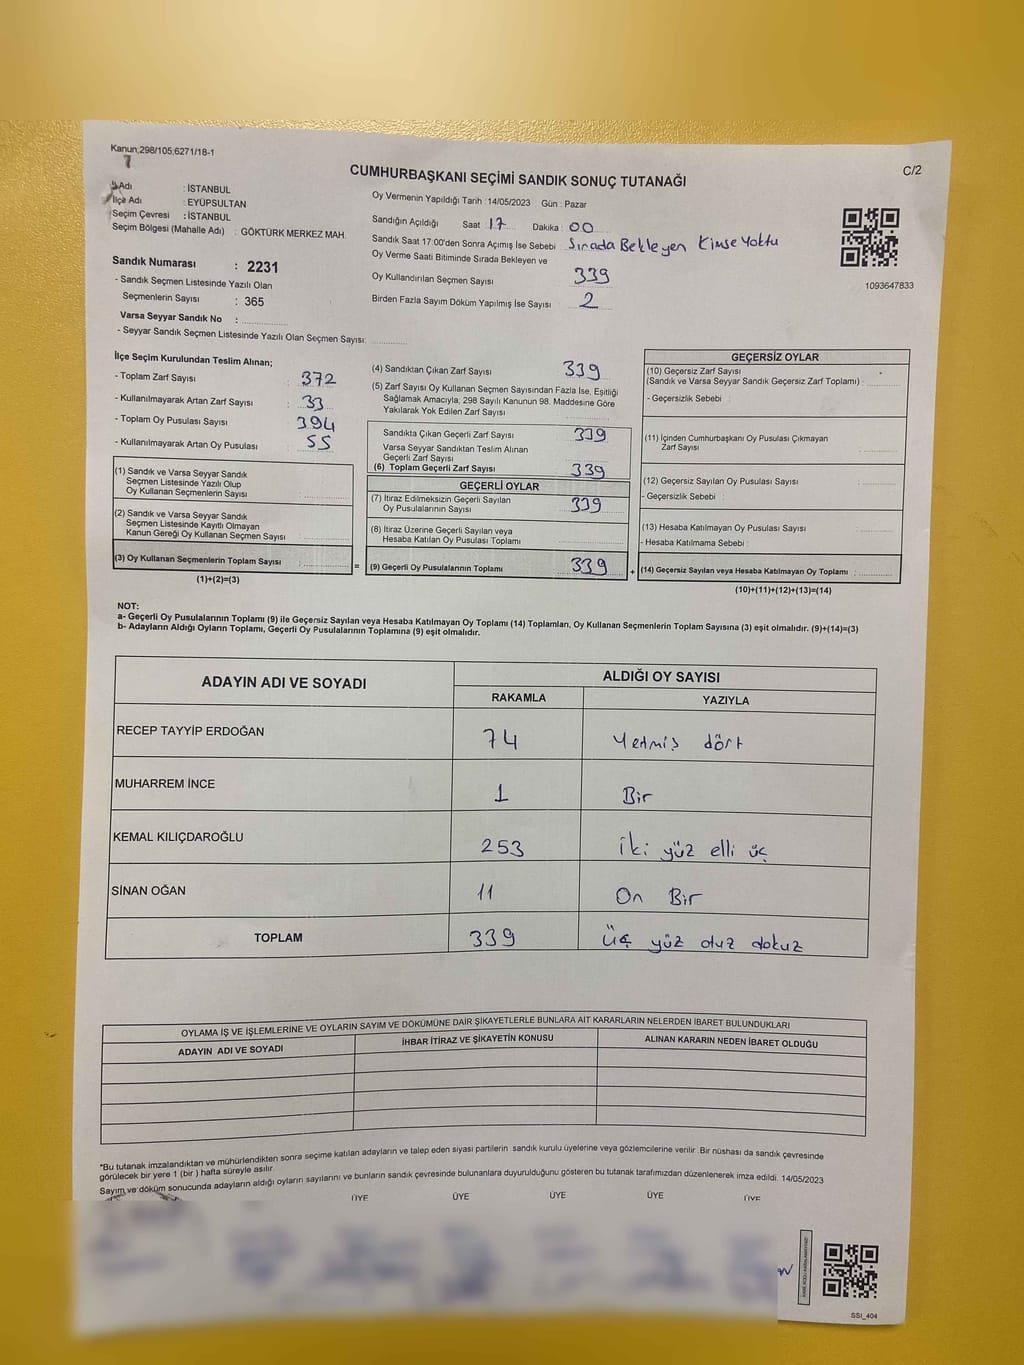 Kanun;298/105;6271/18-1
7
C/2
CUMHURBAŞKANI SEÇİMİ SANDIK SONUÇ TUTANAĞI
Adı : İSTANBUL
İlçe Adı : EYÜPSULTAN
Seçim Çevresi : İSTANBUL
Seçim Bölgesi (Mahalle Adı) : GÖKTÜRK MERKEZ MAH.
Sandık Numarası : 2231
- Sandık Seçmen Listesinde Yazılı Olan
Seçmenlerin Sayısı : 365
Varsa Seyyar Sandık No :
- Seyyar Sandık Seçmen Listesinde Yazılı Olan Seçmen Sayısı:
Oy Vermenin Yapıldığı Tarih :14/05/2023 Gün : Pazar
Sandığın Açıldığı Saat : 17 Dakika : 00
Sandık Saat 17:00'den Sonra Açımış İse Sebebi : Sırada Bekleyen Kimse Yoktu
Oy Verme Saati Bitiminde Sırada Bekleyen ve
Oy Kullandırılan Seçmen Sayısı 339
Birden Fazla Sayım Döküm Yapılmış İse Sayısı 2
1093647833
İlçe Seçim Kurulundan Teslim Alınan;
- Toplam Zarf Sayısı : 372
- Kullanılmayarak Artan Zarf Sayısı : 33
- Toplam Oy Pusulası Sayısı : 394
- Kullanılmayarak Artan Oy Pusulası : 55
(1) Sandık ve Varsa Seyyar Sandık
Seçmen Listesinde Yazılı Olup
Oy Kullanan Seçmenlerin Sayısı :
(2) Sandık ve Varsa Seyyar Sandık
Seçmen Listesinde Kayıtlı Olmayan
Kanun Gereği Oy Kullanan Seçmen Sayısı :
(3) Oy Kullanan Seçmenlerin Toplam Sayısı :
(1)+(2)=(3)
=
(4) Sandıktan Çıkan Zarf Sayısı 339
(5) Zarf Sayısı Oy Kullanan Seçmen Sayısından Fazla İse, Eşitliği
Sağlamak Amacıyla; 298 Sayılı Kanunun 98. Maddesine Göre
Yakılarak Yok Edilen Zarf Sayısı
Sandıkta Çıkan Geçerli Zarf Sayısı 339
Varsa Seyyar Sandıktan Teslim Alınan
Geçerli Zarf Sayısı
(6) Toplam Geçerli Zarf Sayısı 339
GEÇERLİ OYLAR
(7) İtiraz Edilmeksizin Geçerli Sayılan
Oy Pusulalarının Sayısı 339
(8) İtiraz Üzerine Geçerli Sayılan veya
Hesaba Katılan Oy Pusulası Toplamı
(9) Geçerli Oy Pusulalarının Toplamı 339
+
GEÇERSİZ OYLAR
(10) Geçersiz Zarf Sayısı
(Sandık ve Varsa Seyyar Sandık Geçersiz Zarf Toplamı) :
- Geçersizlik Sebebi :
(11) İçinden Cumhurbaşkanı Oy Pusulası Çıkmayan
Zarf Sayısı :
(12) Geçersiz Sayılan Oy Pusulası Sayısı :
- Geçersizlik Sebebi :
(13) Hesaba Katılmayan Oy Pusulası Sayısı :
- Hesaba Katılmama Sebebi :
(14) Geçersiz Sayılan veya Hesaba Katılmayan Oy Toplamı :
(10)+(11)+(12)+(13)=(14)
NOT:
a- Geçerli Oy Pusulalarının Toplamı (9) ile Geçersiz Sayılan veya Hesaba Katılmayan Oy Toplamı (14) Toplamları, Oy Kullanan Seçmenlerin Toplam Sayısına (3) eşit olmalıdır. (9)+(14)=(3)
b- Adayların Aldığı Oyların Toplamı, Geçerli Oy Pusulalarının Toplamına (9) eşit olmalıdır.
ADAYIN ADI VE SOYADI ALDIĞI OY SAYISI
RAKAMLA YAZIYLA
RECEP TAYYİP ERDOĞAN 74 Yetmiş dört
MUHARREM İNCE 1 Bir
KEMAL KILIÇDAROĞLU 253 İki yüz elli üç
SİNAN OĞAN 11 On Bir
TOPLAM 339 üç yüz otuz dokuz
OYLAMA İŞ VE İŞLEMLERİNE VE OYLARIN SAYIM VE DÖKÜMÜNE DAİR ŞİKAYETLERLE BUNLARA AİT KARARLARIN NELERDEN İBARET BULUNDUKLARI
ADAYIN ADI VE SOYADI İHBAR İTİRAZ VE ŞİKAYETİN KONUSU ALINAN KARARIN NEDEN İBARET OLDUĞU
*Bu tutanak imzalandıktan ve mühürlendikten sonra seçime katılan adayların ve talep eden siyasi partilerin sandık kurulu üyelerine veya gözlemcilerine verilir. Bir nüshası da sandık çevresinde
görülecek bir yere 1 (bir ) hafta süreyle asılır.
Sayım ve döküm sonucunda adayların aldığı oyların sayılarını ve bunların sandık çevresinde bulunanlara duyurulduğunu gösteren bu tutanak tarafımızdan düzenlenerek imza edildi. 14/05/2023
ÜYE ÜYE ÜYE ÜYE ÜYE
SSI_404